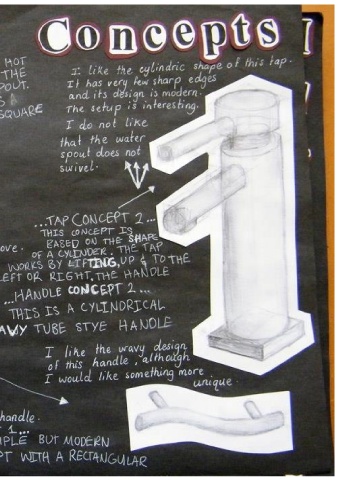 Concepts
HOT
THE
SPOUT.
SQUARE
I like the cylindric shape of this tap.
It has very few sharp edges
and its design is modern.
The setup is interesting.
I do not like
that the water
spout does not
swivel.
...TAP CONCEPT 2...
THIS CONCEPT IS
BASED ON THE SHAPE
OF A CYLINDER. THE TAP
WORKS BY LIFTING UP & TO THE
LEFT OR RIGHT, THE HANDLE
...HANDLE CONCEPT 2...
THIS IS A CYLINDRICAL
TUBE STYE HANDLE
I like the wavy design
of this handle, although
I would like something more
unique.
handle.
1...
BUT MODERN
WITH A RECTANGULAR